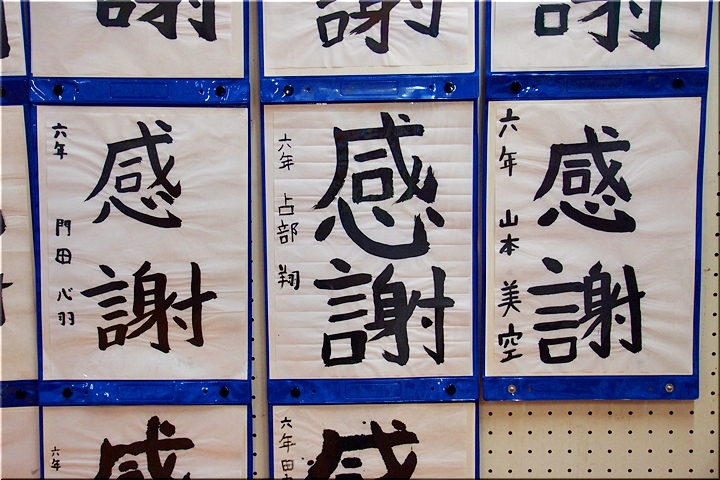 謝
謝
謝
感謝
六年 門田 心羽
感謝
六年 占部 翔
感謝
六年 山本 美空
感
六年
感
六年 田